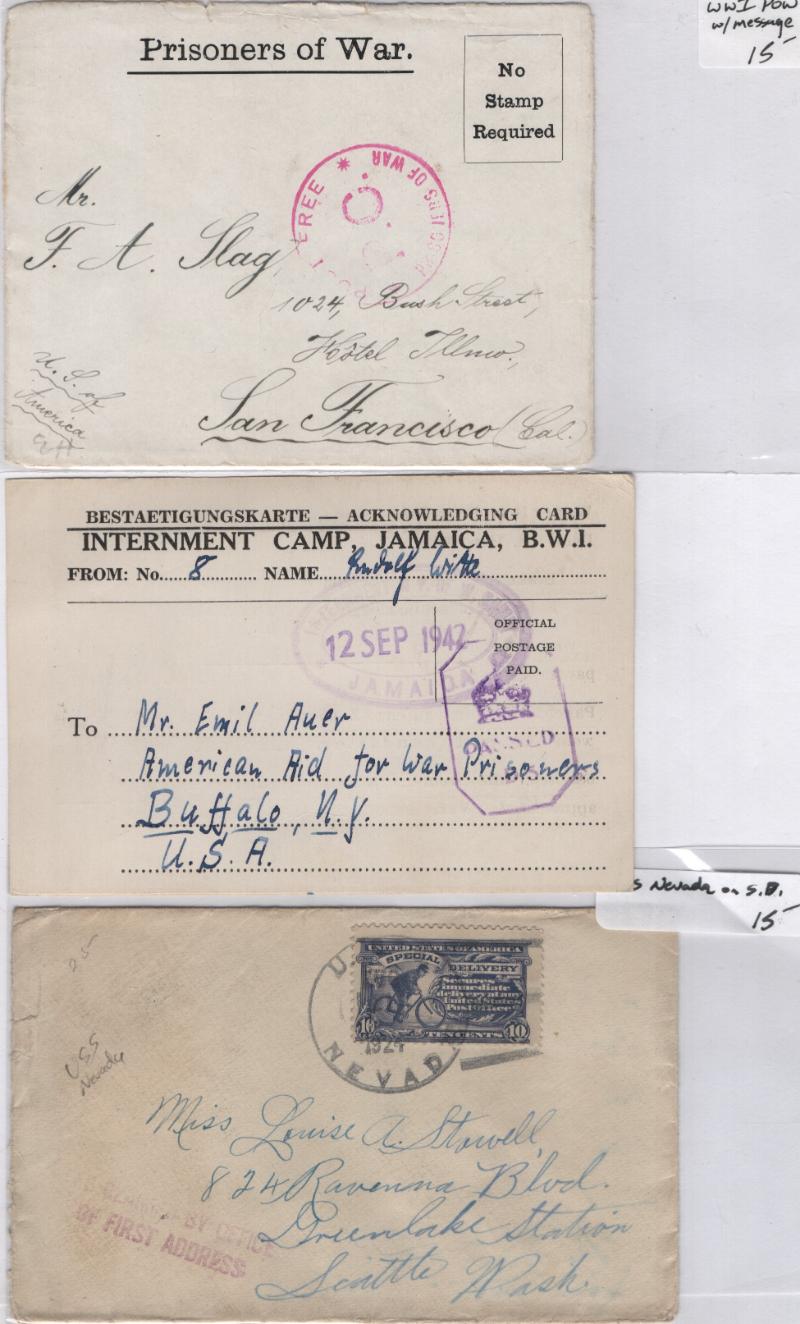 WWI POW
w/ message
15-
Prisoners of War.
No
Stamp
Required
FREE * PRISONERS OF WAR
P.O.
Mr.
F. A. Slag
1024, Bush Street,
Hôtel
San Francisco (Cal.)
U. S. of
America
BESTAETIGUNGSKARTE — ACKNOWLEDGING CARD
INTERNMENT CAMP, JAMAICA, B.W.I.
FROM: No. 8 NAME Rudolf Witte
12 SEP 1942
JAMAICA
OFFICIAL
POSTAGE
PAID.
PASSED
To Mr. Emil Auer
American Aid for War Prisoners
Buffalo, N.Y.
U.S.A.
s Nevada on S.D.
15-
25
USS
Nevada
U.
1924
NEVADA
UNITED STATES OF AMERICA
SPECIAL DELIVERY
Secures
immediate
delivery at any
United States
Post Office
10 TEN CENTS 10
Miss Louise A. Stowell
824 Ravenna Blvd.
Greenlake Station
Seattle Wash.
BY OFFICE
OF FIRST ADDRESS